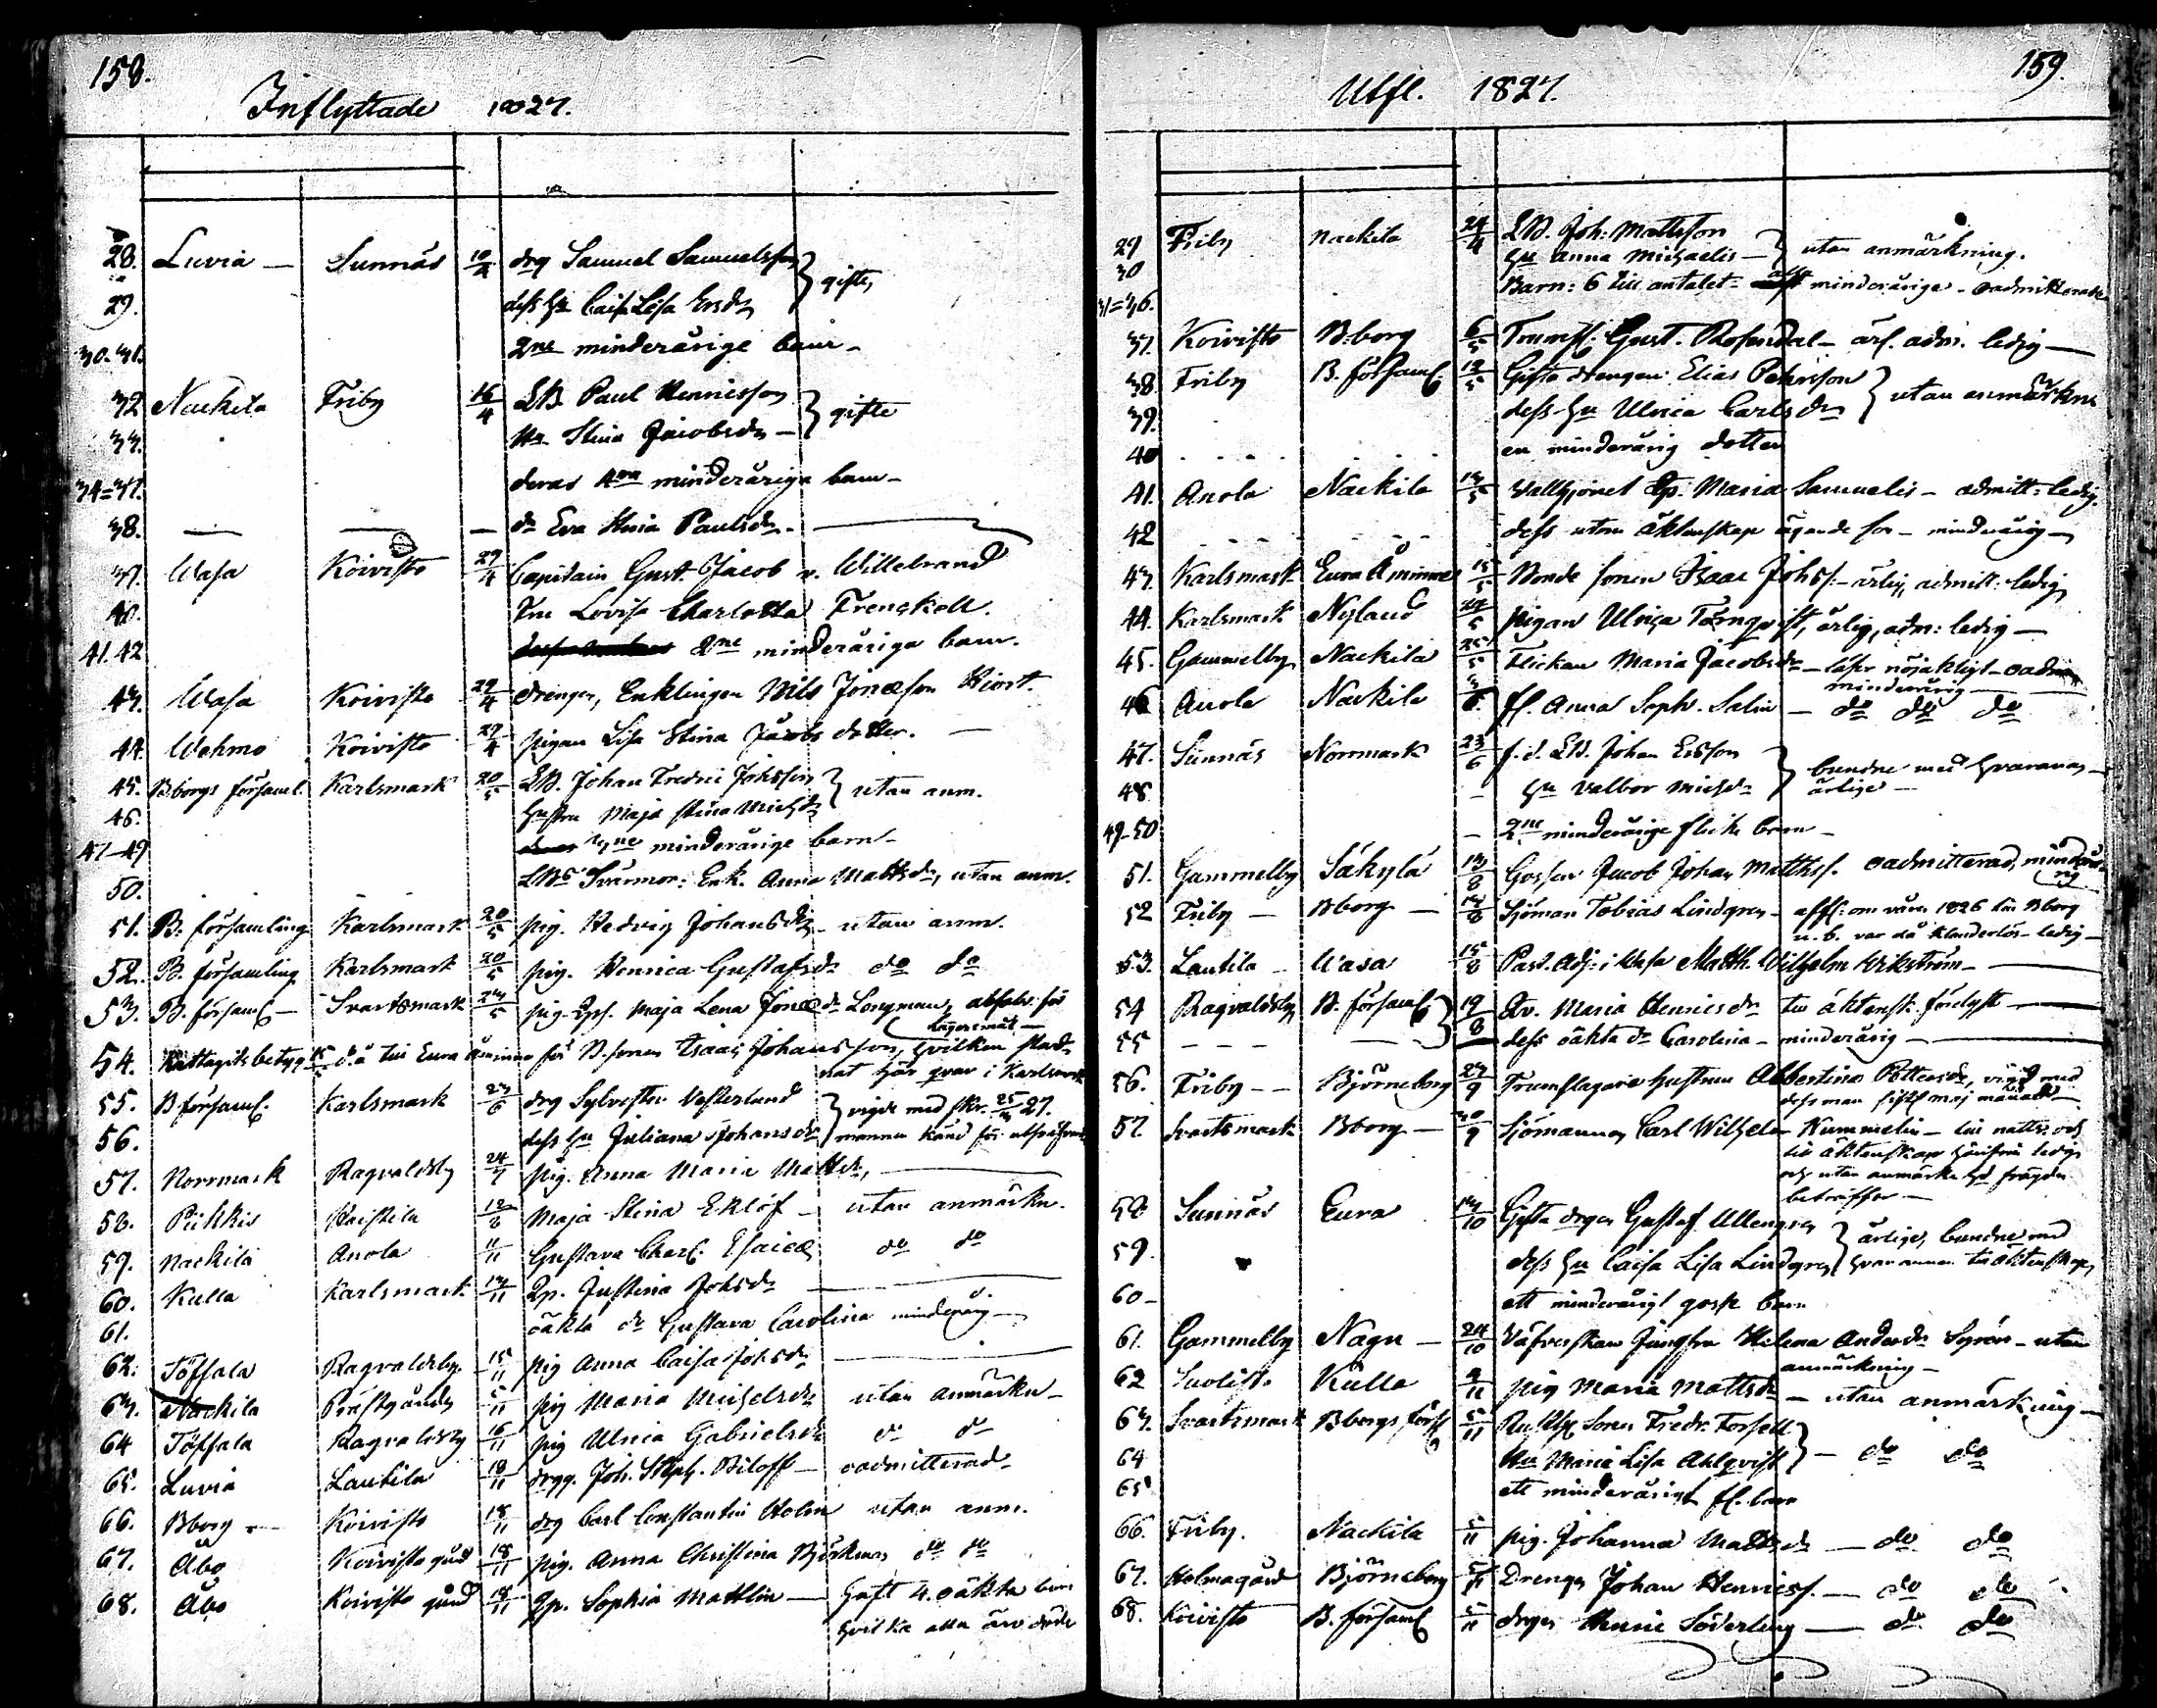 158.
Inflyttade 1827.
28. Luvia — Sunnäs 10/4 drg Samuel Samuelsson } gifte,
29. dess hu Caisa Lisa Ersdr
30. 31. 2ne minderårige barn —
32 Nackila Friby 16/4 LB. Paul Henricsson } gifte
33. Hu Stina Jacobsdr —
34=37. deras 4ra minderåriga barn —
38. — — — dr Eva Stina Paulsdr. —
39. Wasa Koivisto 29/4 Capitain Gust. Jacob v. Willebrand
40. Fru Lovisa Charlotta Frenckell.
41. 42 2ne minderåriga barn.
43. Wasa Koivisto 29/4 drengen, Enklingen Nils Jonæson Hiort.
44. Wehmo Koivisto 29/4 pigan Lisa Stina Jacobs dotter. —
45. Bborgs församl. Karlsmark 20/5 LB. Johan Fredric Johsson } utan anm.
46. hustru Maja Stina Michsdr
47–49 3ne minderårige barn —
50. LBs Svärmor: Enk. Anna Mattsdr, utan anm.
51. B. församling Karlsmark 20/5 pig. Hedvig Johansdr — utan anm.
52. B. församling Karlsmark 20/5 pig. Henrica Gustafsdr do do
53. B. församl — Svartsmark 23/5 pig. Qps. Maja Lena Jonædr Longman, absolv. för
lägersmål —
54. betyg 15/5 då till Eura åminne för B.sonen Isaac Johansson, hvilken stad-
nat här qvar i Karlsmark
55. B församl. Karlsmark 23/6 drg Sylvester Vesterlund } vigde med skr. 25/3 27.
56. dess hu Juliana Johansdr mannen känd för
57. Norrmark Ragvaldsby 24/7 pig. Anna Maria Mattsdr, —
58. Piikkis 12/8 Maja Stina Eklöf — utan anmärkn.
59. Nackila Anola 11/11 Gustava Charl. Esaiæ do do
60. Kulla Karlsmark 13/11 Qp. Justina Johsdr —
61. oäkta dr Gustava Carolina minderårig —
62. Töffsala Ragvaldsby 15/11 pig Anna Caisa Johsdr —
63. Nackila Prästgården 5/11 pig Maria Michelsdr utan anmärkn —
64 Töffsala Ragvaldsby 16/11 pig Ulrica Gabrielsdr do do
65. Luvia Lautila 18/11 drgg. Joh. Steph. Biloff — oadmitterad —
66. Bborg — Koivisto 18/11 drg Carl Constantin Holm utan anm.
67. Åbo Koivisto gård 18/11 pig. Anna Christina Björkman do do
68. Åbo Koivisto gård 18/11 Qp. Sophia Mattlin — haft 4. oäkta barn
hvilka alla äro döde
159.
Utfl. 1827.
29 Friby Nackila 24/4 LB. Joh: Mattsson } utan anmärkning.
30 hu Anna Michaelis —
31=36. Barn: 6 till antalet = alla minderårige — oadmitterade
37. Koivisto B:borg 6/5 Trumsl. Gust. Rosendal — ärl. adm. ledig —
38. Friby B. församl 12/5 Gifta drengen Elias Pehrsson } utan anmärkn
39. dess hu Ulrica Carlsdr
40 . . . . en minderårig dotter
41. Anola Nackila 13/5 Vallhjonet Qp. Maria Samuelis — admitt: ledig.
42 . . . . dess utom äktenskap ägande son — minderårig —
43. Karlsmark Eura Åminne 15/5 Bonde sonen Isaac Johss. — ärlig, admitt: ledig
44. Karlsmark Nyland 22/5 pigan Ulrica Törnqvist, ärlig, adm: ledig —
45. Gammelby Nackila 25/5 Flickan Maria Jacobsdr — läser nöjaktigt — oadm
minderårig —
46 Anola Nackila 3/6. fl. Anna Soph. Salin — do do do
47. Sunnäs Norrmark 23/6 f.d. LB. Johan Ersson } bundne med hvarannan —
48. — hu Valbor Michsdr ärlige —
49–50 — 2ne minderårige flicke barn —
51. Gammelby Säkylä 13/8 Gossen Jacob Johan Mattss. oadmitterad, minderå-
rig
52 Friby — Bborg — 14/8 Sjöman Tobias Lindgren — affl: om våren 1826 till Bborg
n. b. var då klanderlös — ledig —
53. Lautila — Wasa 15/8 Past. Adj: i Wasa Matth. Wilhelm Wikström — —
54 Ragvaldsby B. församl 19/8 Qv. Maria Henricsdr till äktensk. förlyst —
55 — — — — dess oäkta dr Carolina — minderårig —
56. Friby — — Björneborg 27/9 Trumslagare hustrun Albertina Pettersdr, vigd med
dess man sistl. maj månad —
57. Svartsmark Bborg — 30/9 Sjömannen Carl Wilhelm Kummelin — till nattv: och
till äktenskap härifrån ledig
och utan anmärkn: hvad fräjden
beträffar —
58 Sunnäs Eura 13/10 Gifta drgen Gustaf Ullengren } ärlige, bundne med
59. dess hu Caisa Lisa Lindgren hvarannan till äktenskap,
60 — ett minderårigt gosse barn
61. Gammelby Nagu — 24/10 Väfverskan Jungfru Helena Andersdr Syrén — utan
anmärkning —
62 Kulla 2/11 pig Maria Mattsdr — utan anmärkning —
63. Svartsmark Bborgs förs 5/11 Sonen Fredr. Forsell } — do do
64 Hu Maria Lisa Ahlqvist
65 ett minderårigt fl. barn
66. Friby. Nackila 5/11 pig. Johanna Mattsdr — do do
67. Holmagård Björneborg 5/11 Drengen Johan Henricss. — do do
68. Koivisto B. församl 5/11 drgen Henric Söderling — do do